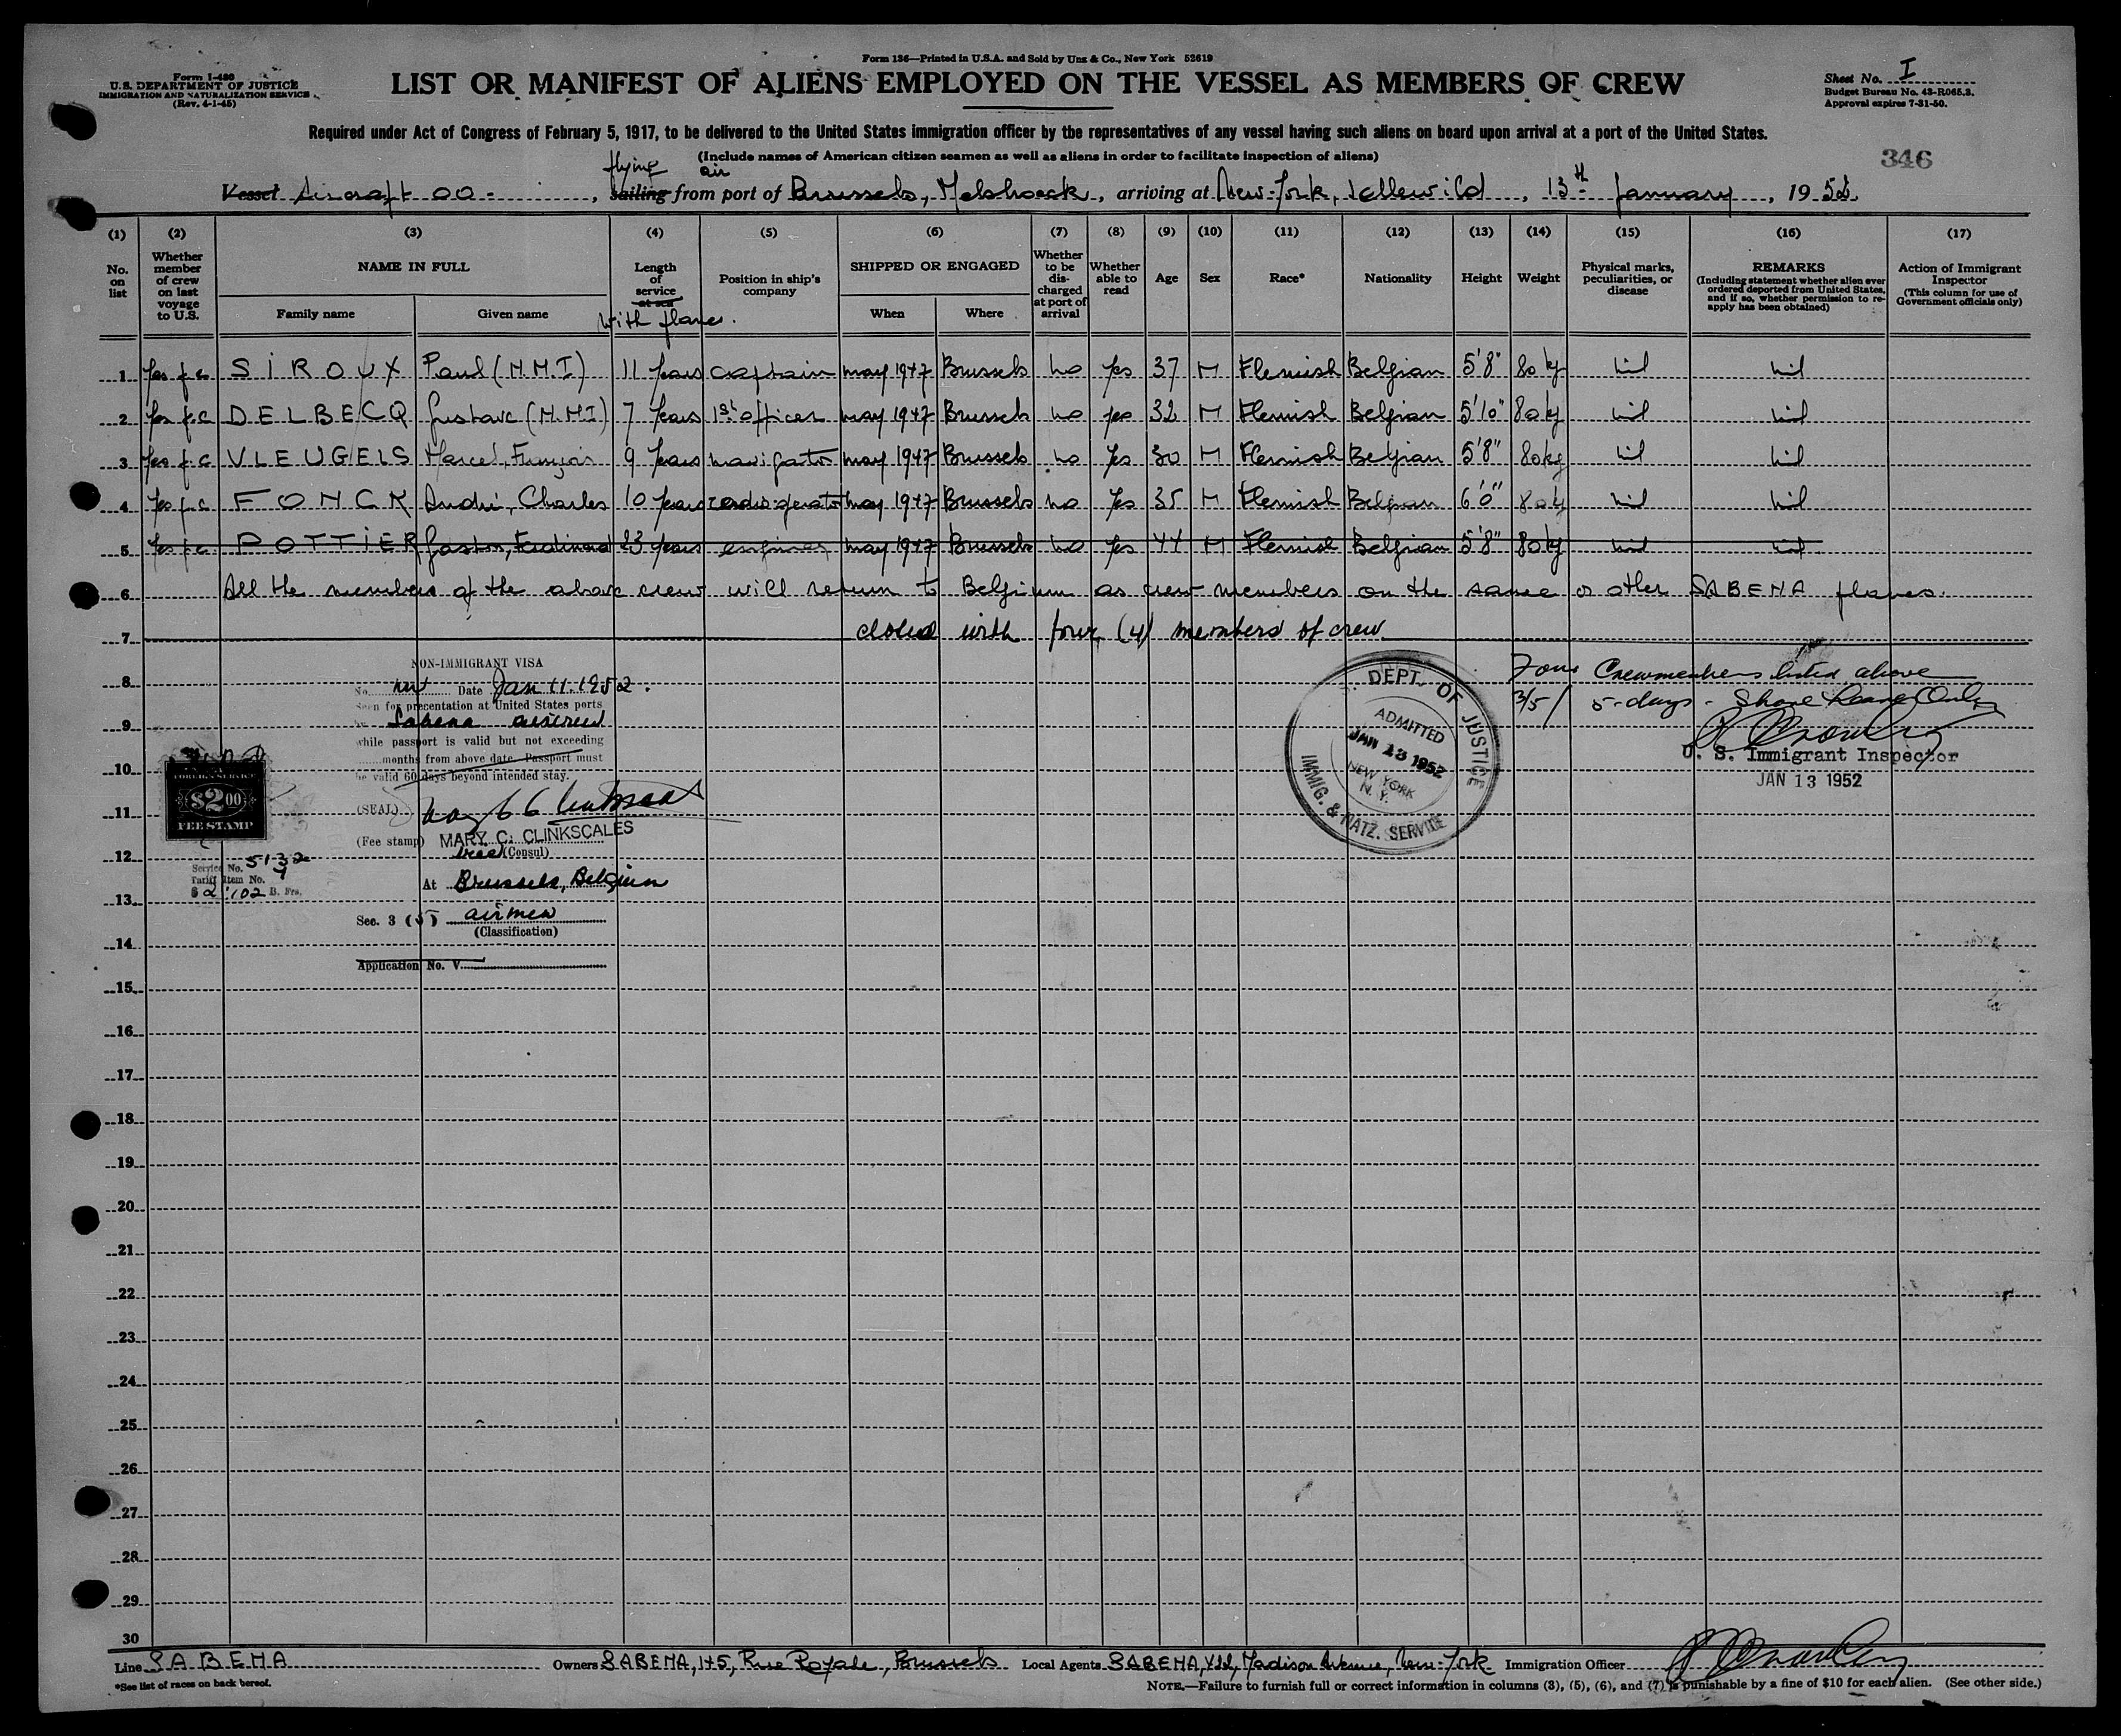 Form I-480
U.S. DEPARTMENT OF JUSTICE
IMMIGRATION AND NATURALIZATION SERVICE
(Rev. 4-1-45)
Form 136—Printed in U.S.A. and Sold by Unz & Co., New York 52619
LIST OR MANIFEST OF ALIENS EMPLOYED ON THE VESSEL AS MEMBERS OF CREW
Sheet No. I
Budget Bureau No. 43-R065.3.
Approval expires 7-31-50.
Required under Act of Congress of February 5, 1917, to be delivered to the United States immigration officer by the representatives of any vessel having such aliens on board upon arrival at a port of the United States.
(Include names of American citizen seamen as well as aliens in order to facilitate inspection of aliens)
346
flying air
Vessel Aircraft OO-, sailing from port of Brussels, Melsbroeck, arriving at New-York, Idlewild, 13th January, 1952.
(1) (2) (3) (4) (5) (6) (7) (8) (9) (10) (11) (12) (13) (14) (15) (16) (17)
No. on list
Whether member of crew on last voyage to U.S.
NAME IN FULL
Family name
Given name
Length of service at sea
With planes.
Position in ship's company
SHIPPED OR ENGAGED
When
Where
Whether to be discharged at port of arrival
Whether able to read
Age
Sex
Race*
Nationality
Height
Weight
Physical marks, peculiarities, or disease
REMARKS
(Including statement whether alien ever ordered deported from United States, and if so, whether permission to re-apply has been obtained)
Action of Immigrant Inspector
(This column for use of Government officials only)
1 Yes f.c. SIROUX Paul (N.M.I) 11 Years captain may 1947 Brussels no Yes 37 M Flemish Belgian 5'8" 80 kg nil nil
2 Yes f.c DELBECQ Gustave (N.M.I) 7 Years 1st officer may 1947 Brussels no yes 32 M Flemish Belgian 5'10" 80 kg nil nil
3 Yes f.c VLEUGELS Marcel, François 9 Years navigator may 1947 Brussels no Yes 30 M Flemish Belgian 5'8" 80 kg nil nil
4 Yes f.c FONCK André, Charles 10 Years radio-operator may 1947 Brussels no Yes 35 M Flemish Belgian 6'0" 80 kg nil nil
5 Yes f.c. POTTIER Gaston, Ferdinand 23 Years engineer may 1947 Brussels no Yes 44 M Flemish Belgian 5'8" 80 kg nil nil
6 All the members of the above crew will return to Belgium as crew members on the same or other SABENA planes.
7 closed with four (4) members of crew
8
9
10
11
12
13
14
15
16
17
18
19
20
21
22
23
24
25
26
27
28
29
30
NON-IMMIGRANT VISA
No. Date Jan 11. 1952.
Seen for presentation at United States ports
Sabena aircrew
while passport is valid but not exceeding
months from above date. Passport must
be valid 60 days beyond intended stay.
(SEAL)
(Fee stamp) MARY C. CLINKSCALES
Vice (Consul)
At Brussels, Belgium
Sec. 3 (5) airmen
(Classification)
Application No. V
FOREIGN SERVICE
$2.00
FEE STAMP
Service No. 5132
Tariff Item No. 9
$ 2 : 102 B. Frs.
DEPT. OF JUSTICE
ADMITTED
JAN 13 1952
NEW YORK
N. Y.
IMMIG. & NATZ. SERVICE
Four Crewmembers listed above
3/5/ 5-days - Shore Leave Only
U. S. Immigrant Inspector
JAN 13 1952
Line SABENA Owners SABENA, 145, Rue Royale, Brussels Local Agents SABENA, Madison Avenue, New-York Immigration Officer
*See list of races on back hereof.
NOTE.—Failure to furnish full or correct information in columns (3), (5), (6), and (7) is punishable by a fine of $10 for each alien. (See other side.)